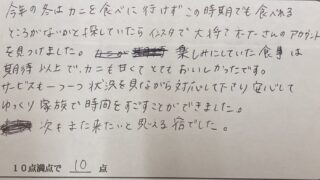 今年の冬はカニを食べに行けずこの時期でも食べれる
ところがないかと探していたらインスタで大将さんのアカウント
を見つけました。楽しみにしていた食事は
期待以上で、カニも甘くてとてもおいしかったです。
サービスも一つ一つ状況を見ながら対応して下さり安心して
ゆっくり家族で時間をすごすことができました。
次もまた来たいと思える宿でした。
10点満点で 10 点